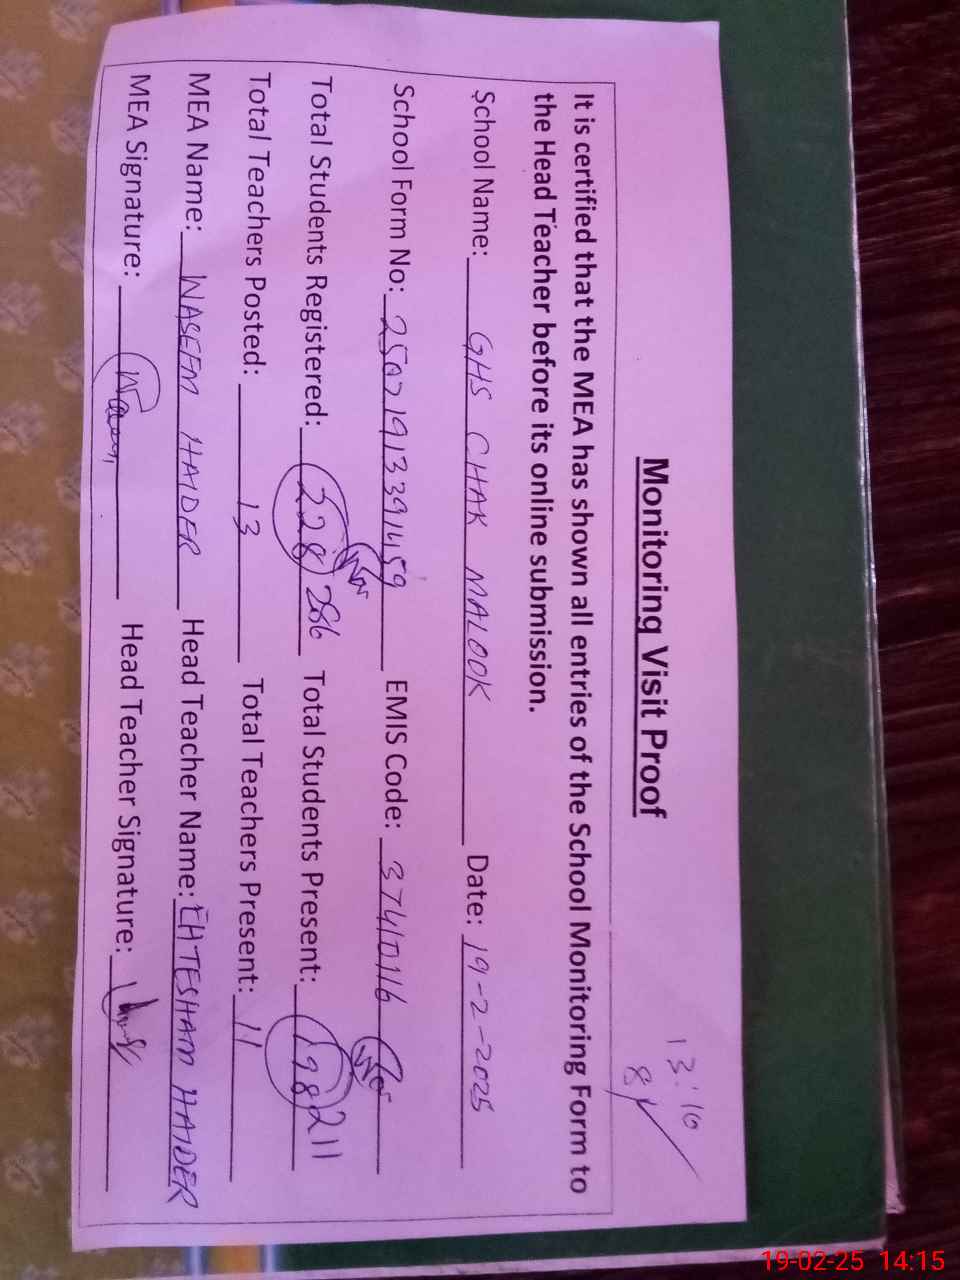 Monitoring Visit Proof
13:10
It is certified that the MEA has shown all entries of the School Monitoring Form to
the Head Teacher before its online submission.
School Name: GHS CHAK MALOOK Date: 19-2-2025
School Form No: 25021913391459 EMIS Code: 37410116
Total Students Registered: 228 286 Total Students Present: 198 211
Total Teachers Posted: 13 Total Teachers Present: 11
MEA Name: WASEEM HAIDER Head Teacher Name: EHTESHAM HAIDER
MEA Signature: Head Teacher Signature:
19-02-25 14:15